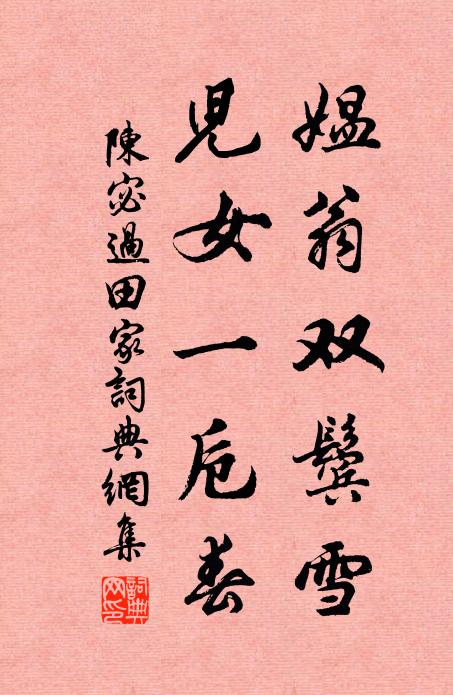 媪翁双鬓雪
儿女一卮春
陳宓過田家詞典網集
詞典网印